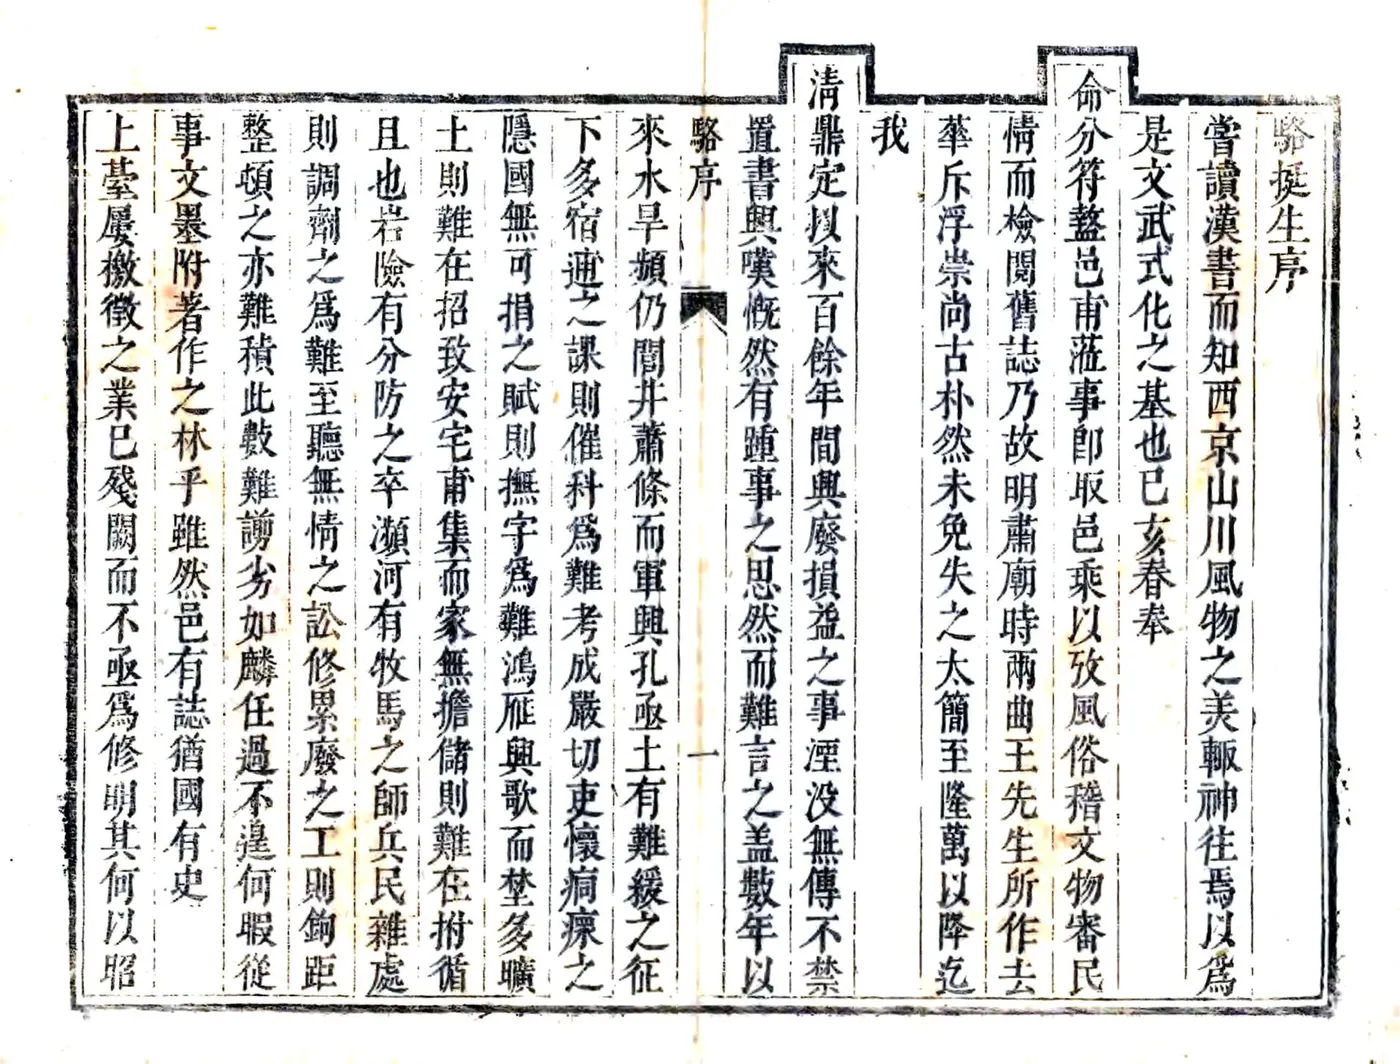 駱挺生序
嘗讀漢書而知西京山川風物之美輙神往焉以爲
是文武式化之基也已亥春奉
命分符盩邑甫蒞事卽取邑乘以攷風俗稽文物審民
情而檢閱舊誌乃故明肅廟時兩曲王先生所作去
華斥浮崇尚古朴然未免失之太簡至隆萬以降迄
我
淸鼎定以來百餘年間興廢損益之事湮没無傳不禁
置書興嘆慨然有踵事之思然而難言之盖數年以
駱序
一
來水旱頻仍閭井蕭條而軍興孔亟土有難緩之征
下多宿逋之課則催科爲難考成嚴切吏懷痌瘝之
隱國無可捐之賦則撫字爲難鴻雁興歌而埜多曠
土則難在招致安宅甫集而家無擔儲則難在拊循
且也岩險有分防之卒瀕河有牧馬之師兵民雜處
則調劑之爲難至聽無情之訟修累廢之工則鉤距
整頓之亦難積此數難謭劣如麟任過不遑何暇從
事文墨附著作之林乎雖然邑有誌猶國有史
上臺屢檄徵之業已殘闕而不亟爲修明其何以昭